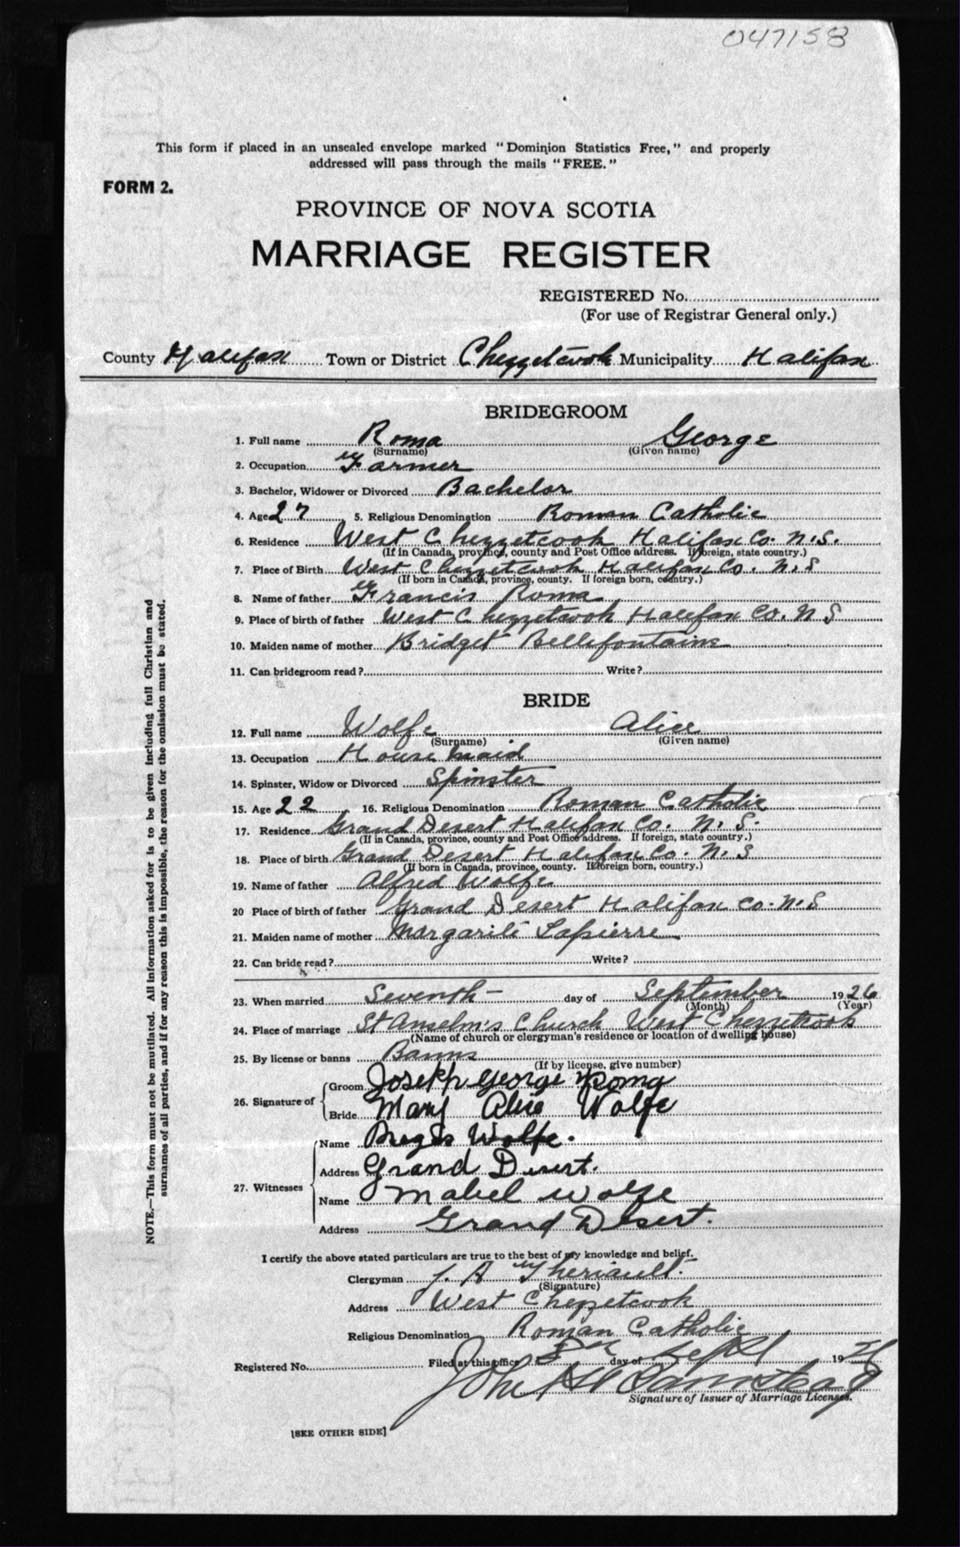 047158
This form if placed in an unsealed envelope marked "Dominion Statistics Free," and properly
addressed will pass through the mails "FREE."
FORM 2.
PROVINCE OF NOVA SCOTIA
MARRIAGE REGISTER
REGISTERED No.
(For use of Registrar General only.)
County Halifax Town or District Chezzetcook Municipality Halifax
BRIDEGROOM
1. Full name Roma George
(Surname) (Given name)
2. Occupation Farmer
3. Bachelor, Widower or Divorced Bachelor
4. Age 27 5. Religious Denomination Roman Catholic
6. Residence West Chezzetcook Halifax Co. N.S.
(If in Canada, province, county and Post Office address. If foreign, state country.)
7. Place of Birth West Chezzetcook Halifax Co. N.S
(If born in Canada, province, county. If foreign born, country.)
8. Name of father Francis Roma
9. Place of birth of father West Chezzetcook Halifax Co. N S
10. Maiden name of mother Bridget Bellefontaine
11. Can bridegroom read? Write?
BRIDE
12. Full name Wolfe Alice
(Surname) (Given name)
13. Occupation House Maid
14. Spinster, Widow or Divorced Spinster
15. Age 22 16. Religious Denomination Roman Catholic
17. Residence Grand Desert Halifax Co. N. S.
(If in Canada, province, county and Post Office address. If foreign, state country.)
18. Place of birth Grand Desert Halifax Co. N. S
(If born in Canada, province, county. If foreign born, country.)
19. Name of father Alfred Wolfe
20 Place of birth of father Grand Desert Halifax Co. N.S
21. Maiden name of mother Margarite Lapierre
22. Can bride read? Write?
23. When married Seventh day of September 1926
(Month) (Year)
24. Place of marriage St Anselm's Church West Chezzetcook
(Name of church or clergyman's residence or location of dwelling house)
25. By license or banns Banns
(If by license, give number)
26. Signature of Groom Joseph George Roma
Bride Mary Alice Wolfe
27. Witnesses Name Regis Wolfe.
Address Grand Desert.
Name Mabel Wolfe
Address Grand Desert.
I certify the above stated particulars are true to the best of my knowledge and belief.
Clergyman J. A Theriault.
(Signature)
Address West Chezzetcook
Religious Denomination Roman Catholic
Registered No. Filed at this office day of Sept 19
John
Signature of Issuer of Marriage Licenses.
[SEE OTHER SIDE]
NOTE.—This form must not be mutilated. All information asked for is to be given including full Christian and
surnames of all parties, and if for any reason this is impossible, the reason for the omission must be stated.